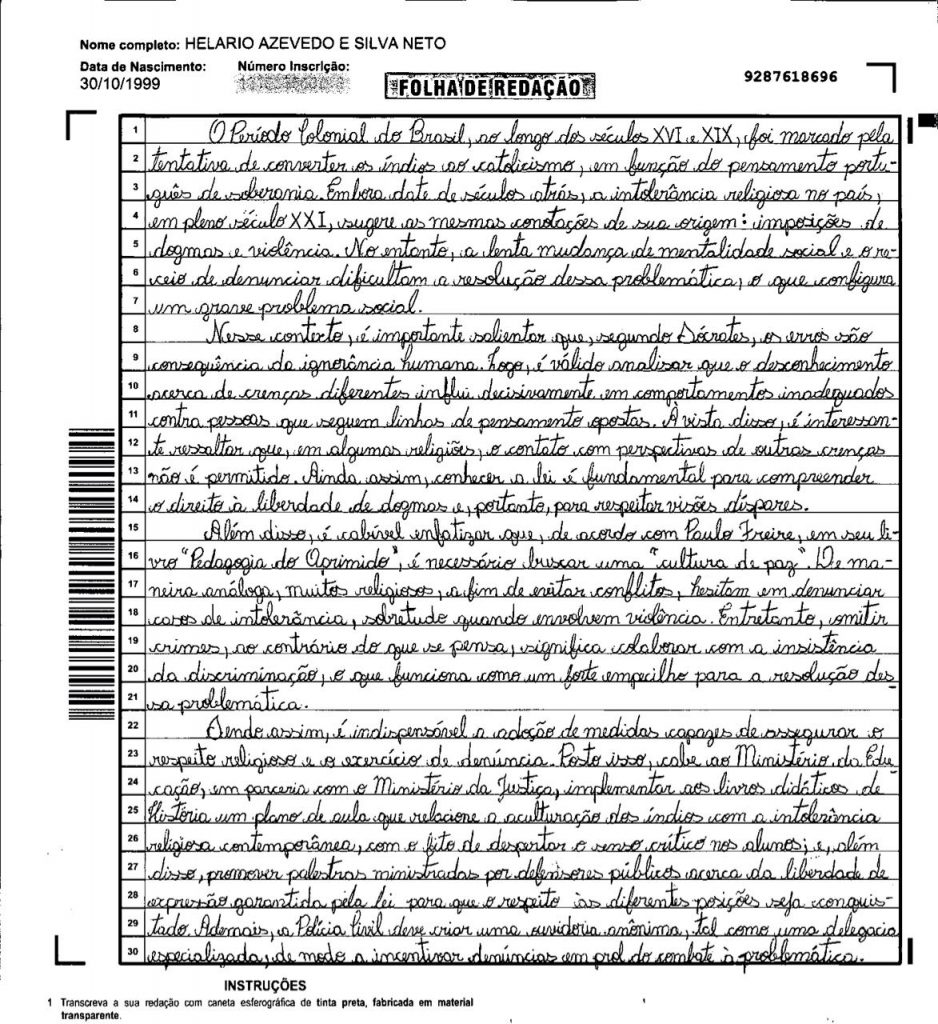 Nome completo: HELARIO AZEVEDO E SILVA NETO
Data de Nascimento: Número Inscrição:
30/10/1999
FOLHA DE REDAÇÃO
9287618696
1 O Período Colonial do Brasil, ao longo dos séculos XVI e XIX, foi marcado pela
2 tentativa de converter os índios ao catolicismo, em função do pensamento portu-
3 guês de soberania. Embora date de séculos atrás, a intolerância religiosa no país,
4 em pleno século XXI, sugere as mesmas conotações de sua origem: imposições de
5 dogmas e violência. No entanto, a lenta mudança de mentalidade social e o re-
6 ceio de denunciar dificultam a resolução dessa problemática, o que configura
7 um grave problema social.
8 Nesse contexto, é importante salientar que, segundo Sócrates, os erros são
9 consequência da ignorância humana. Logo, é válido analisar que o desconhecimento
10 acerca de crenças diferentes influi decisivamente em comportamentos inadequados
11 contra pessoas que seguem linhas de pensamento opostas. À vista disso, é interessan-
12 te ressaltar que, em algumas religiões, o contato com perspectivas de outras crenças
13 não é permitido. Ainda assim, conhecer a lei é fundamental para compreender
14 o direito à liberdade de dogmas e, portanto, para respeitar visões díspares.
15 Além disso, é cabível enfatizar que, de acordo com Paulo Freire, em seu li-
16 vro "Pedagogia do Oprimido", é necessário buscar uma "cultura de paz". De ma-
17 neira análoga, muitos religiosos, a fim de evitar conflitos, hesitam em denunciar
18 casos de intolerância, sobretudo quando envolvem violência. Entretanto, omitir
19 crimes, ao contrário do que se pensa, significa colaborar com a insistência
20 da discriminação, o que funciona como um forte empecilho para a resolução des
21 sa problemática.
22 Sendo assim, é indispensável a adoção de medidas capazes de assegurar o
23 respeito religioso e o exercício de denúncia. Posto isso, cabe ao Ministério da Edu
24 cação, em parceria com o Ministério da Justiça, implementar aos livros didáticos de
25 História um plano de aula que relacione a aculturação dos índios com a intolerância
26 religiosa contemporânea, com o fito de despertar o senso crítico nos alunos; e, além
27 disso, promover palestras ministradas por defensores públicos acerca da liberdade de
28 expressão garantida pela lei para que o respeito às diferentes posições seja conquis-
29 tado. Ademais, a Polícia Civil deve criar uma ouvidoria anônima, tal como uma delegacia
30 especializada, de modo a incentivar denúncias em prol do combate à problemática.
INSTRUÇÕES
1 Transcreva a sua redação com caneta esferográfica de tinta preta, fabricada em material
transparente.